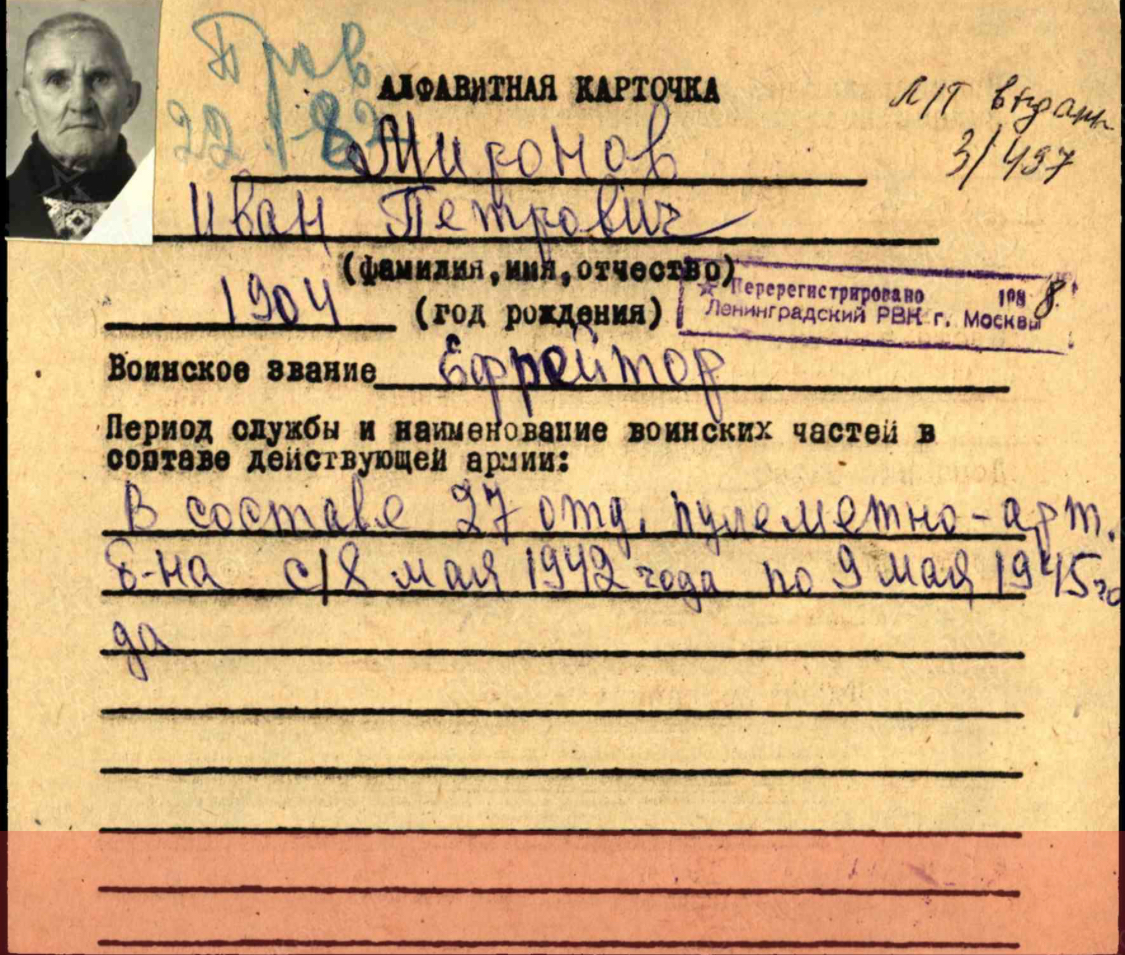 Пров
22.
АЛФАВИТНАЯ КАРТОЧКА
выдан
3/497
Миронов
Иван Петрович
(фамилия, имя, отчество)
1904 (год рождения)
Перерегистрировано 198 8.
Ленинградский РВК г. Москвы
Воинское звание Ефрейтор
Период службы и наименование воинских частей в
составе действующей армии:
В составе 27 отд. пулеметно-арт.
б-на с/8 мая 1942 года по 9 мая 1945 го
да